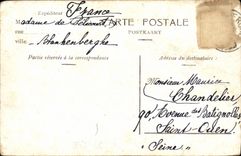 Expéditeur France
Madame de
CARTE POSTALE
rue
POSTKAART
ville Blankenberghe
Partie réservée à la correspondance
Adresse du destinataire
Monsieur Maurice
Chandelier
90 Avenue des Batignolles
Saint-Ouen
"Seine"